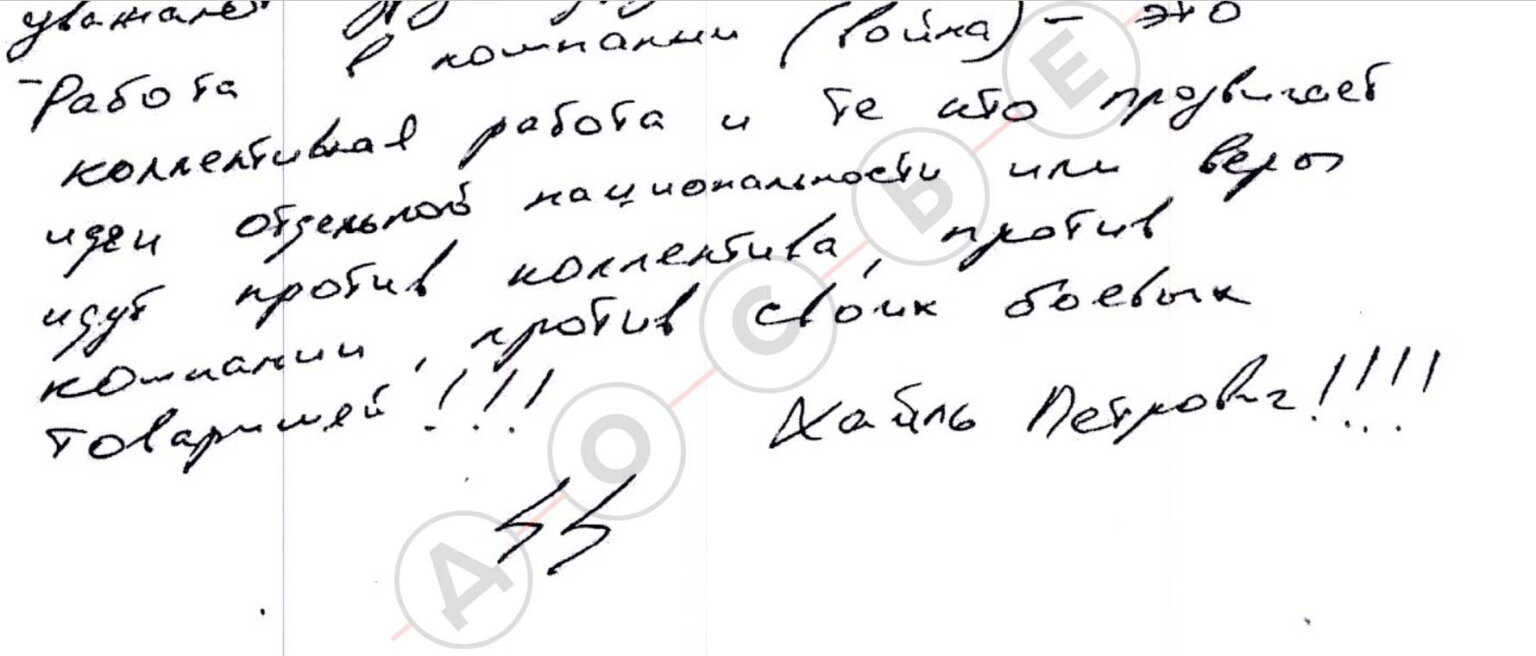 уважале
- Работа в компании (война) - это
коллективная работа и те кто продвигает
идеи отдельной национальности или веры
идут против коллектива, против
компании, против своих боевых
товарищей!!!
Хайль Петрович!!!!
ДОСЬЕ